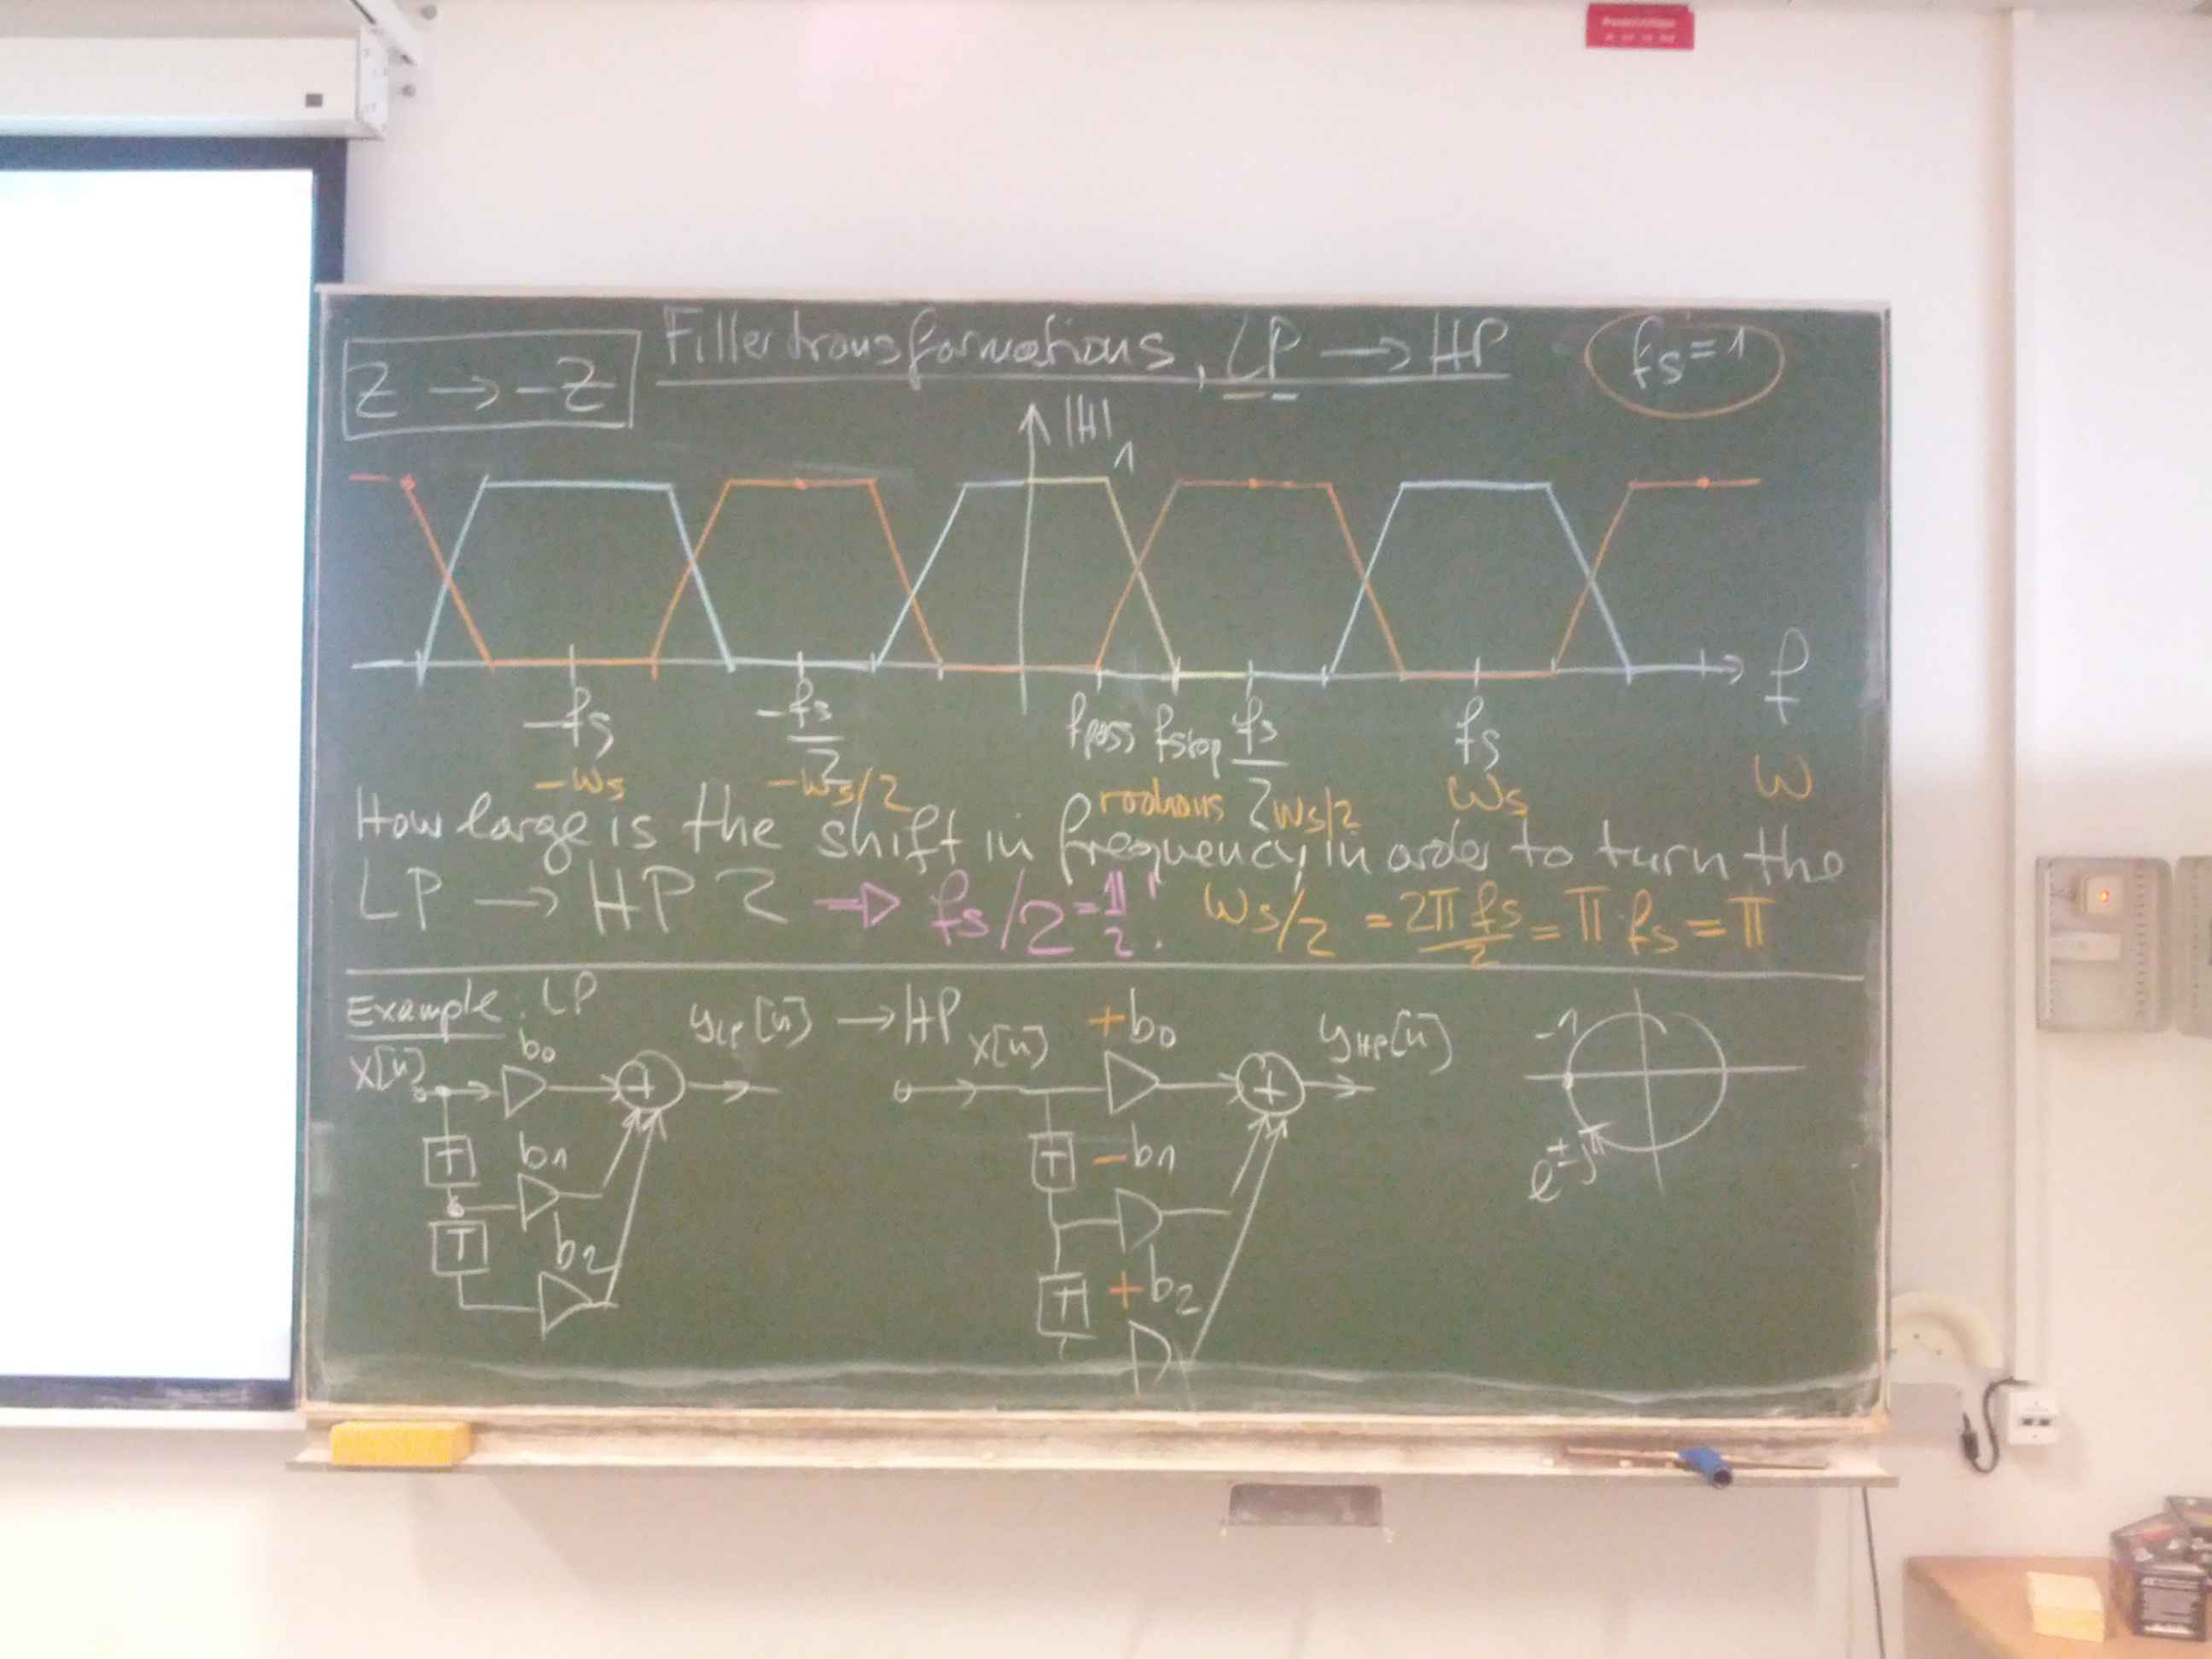 Z → -Z
Filtertransformations, LP → HP
fs = 1
|H|
1
f
-fs
-fs/2
fpass fstop fs/2
fs
-ws
-ws/2
radians
ws/2
ws
w
How large is the shift in frequency, in order to turn the
LP → HP ? ⇒ fs/2 = 1/2 ! ws/2 = 2π fs/2 = π · fs = π
Example: LP
x[n]
b0
yLP[n]
T
b1
T
b2
→ HP
x[n]
+b0
yHP[n]
T
-b1
T
+b2
-1
e^±jπ